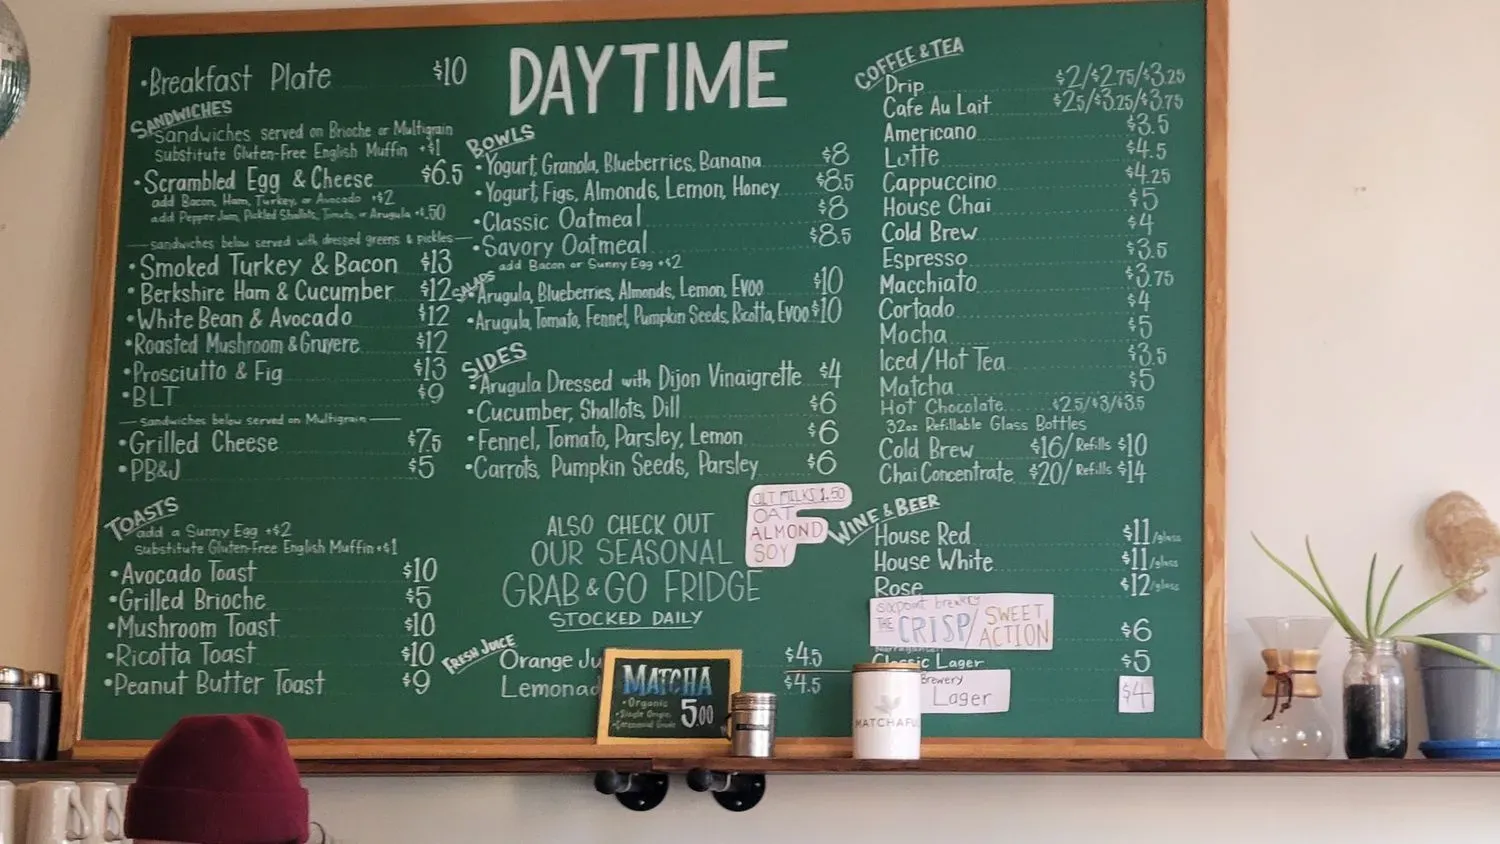 DAYTIME
•Breakfast Plate $10
SANDWICHES
Sandwiches served on Brioche or Multigrain
substitute Gluten-Free English Muffin +$1
•Scrambled Egg & Cheese $6.5
add Bacon, Ham, Turkey, or Avocado +$2
add Pepper Jam, Pickled Shallots, Tomato, or Arugula +$.50
sandwiches below served with dressed greens & pickles
•Smoked Turkey & Bacon $13
•Berkshire Ham & Cucumber $12
•White Bean & Avocado $12
•Roasted Mushroom & Gruyere $12
•Prosciutto & Fig $13
•BLT $9
Sandwiches below served on Multigrain
•Grilled Cheese $7.5
•PB&J $5
TOASTS
add a Sunny Egg +$2
substitute Gluten-Free English Muffin +$1
•Avocado Toast $10
•Grilled Brioche $5
•Mushroom Toast $10
•Ricotta Toast $10
•Peanut Butter Toast $9
BOWLS
•Yogurt, Granola, Blueberries, Banana $8
•Yogurt, Figs, Almonds, Lemon, Honey $8.5
•Classic Oatmeal $8
•Savory Oatmeal $8.5
add Bacon or Sunny Egg +$2
SALADS
•Arugula, Blueberries, Almonds, Lemon, EVOO $10
•Arugula, Tomato, Fennel, Pumpkin Seeds, Ricotta, EVOO $10
SIDES
•Arugula Dressed with Dijon Vinaigrette $4
•Cucumber, Shallots, Dill $6
•Fennel, Tomato, Parsley, Lemon $6
•Carrots, Pumpkin Seeds, Parsley $6
ALSO CHECK OUT
OUR SEASONAL
GRAB & GO FRIDGE
STOCKED DAILY
FRESH JUICE
Orange Ju $4.5
Lemonad $4.5
MATCHA
•Organic
•Single Origin
•Ceremonial Grade
5.00
ALT MILKS 1.50
OAT
ALMOND
SOY
COFFEE & TEA
Drip $2/$2.75/$3.25
Cafe Au Lait $2.5/$3.25/$3.75
Americano $3.5
Latte $4.5
Cappuccino $4.25
House Chai $5
Cold Brew $4
Espresso $3.5
Macchiato $3.75
Cortado $4
Mocha $5
Iced/Hot Tea $3.5
Matcha $5
Hot Chocolate $2.5/$3/$3.5
32oz Refillable Glass Bottles
Cold Brew $16/Refills $10
Chai Concentrate $20/Refills $14
WINE & BEER
House Red $11/glass
House White $11/glass
Rose $12/glass
sixpoint brewery
THE CRISP/SWEET ACTION $6
Narragansett
Classic Lager $5
Brewery
Lager $4
MATCHAFU